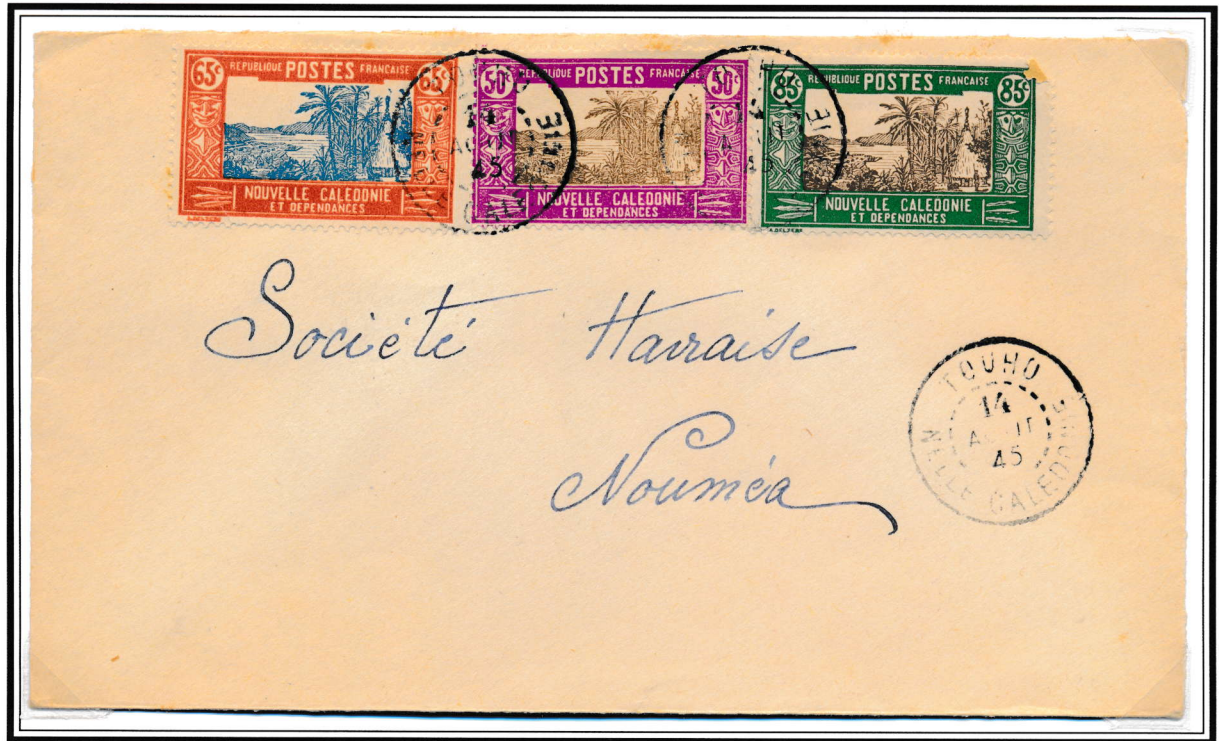 65c REPUBLIQUE POSTES FRANCAISE 65c
NOUVELLE CALÉDONIE
ET DEPENDANCES
50c REPUBLIQUE POSTES FRANCAISE 50c
NOUVELLE CALÉDONIE
ET DEPENDANCES
85c REPUBLIQUE POSTES FRANCAISE 85c
NOUVELLE CALÉDONIE
ET DEPENDANCES
A.DELZERS
14
AOUT
45
45
Société Havraise
Nouméa
TOUHO
14
AOUT
45
NELLE CALEDONIE